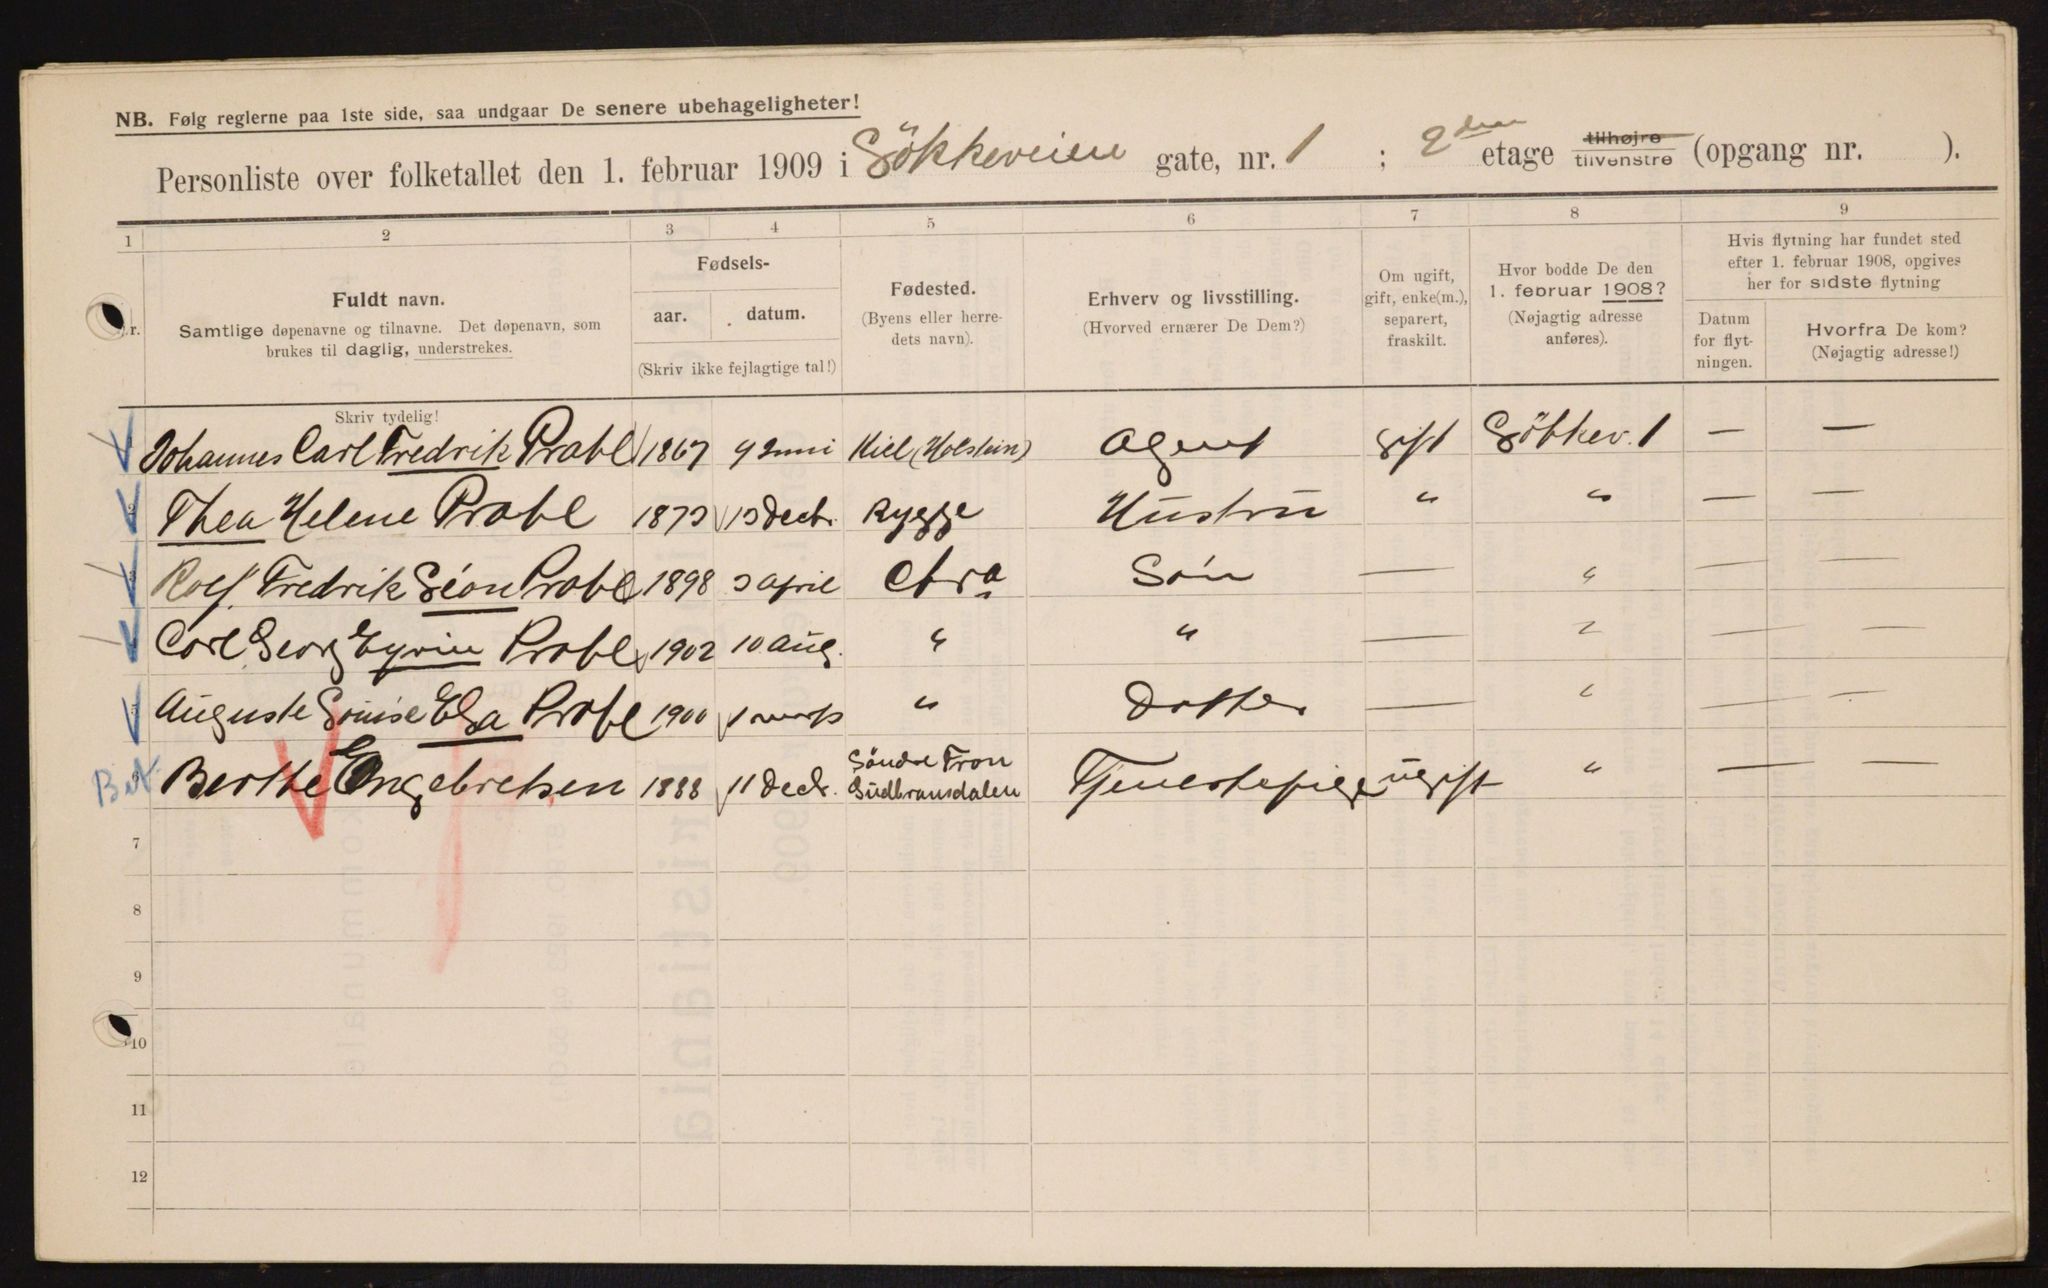 NB. Følg reglerne paa 1ste side, saa undgaar De senere ubehageligheter!
Personliste over folketallet den 1. februar 1909 i Løkkeveien gate, nr. 1 ; 2den etage tilhøjre tilvenstre (opgang nr. ).
1 2 3 4 5 6 7 8 9
Nr.
Fuldt navn.
Samtlige døpenavne og tilnavne. Det døpenavn, som
brukes til daglig, understrekes.
Fødsels-
aar. datum.
(Skriv ikke fejlagtige tal!)
Fødested.
(Byens eller herre-
dets navn).
Erhverv og livsstilling.
(Hvorved ernærer De Dem?)
Om ugift,
gift, enke(m.),
separert,
fraskilt.
Hvor bodde De den
1. februar 1908?
(Nøjagtig adresse
anføres).
Hvis flytning har fundet sted
efter 1. februar 1908, opgives
her for sidste flytning
Datum
for flyt-
ningen.
Hvorfra De kom?
(Nøjagtig adresse!)
Skriv tydelig!
1 Johannes Carl Fredrik Prahl 1867 9 Juni Kiel (Holstein) Agent gift Løkkev. 1 — —
2 Thea Helene Prahl 1873 13 Decbr. Rygge Hustru " " — —
3 Rolf Fredrik Leon Prahl 1898 3 April Chra Søn — " — —
4 Carl Georg Eyvin Prahl 1902 10 Aug. " " — " — —
5 Auguste Louise Elsa Prahl 1900 1 marts " Datter — " — —
6 Berthe Engebretsen 1888 11 Decbr. Søndre Fron Gudbransdalen Tjenestepige ugift " — —
7
8
9
10
11
12